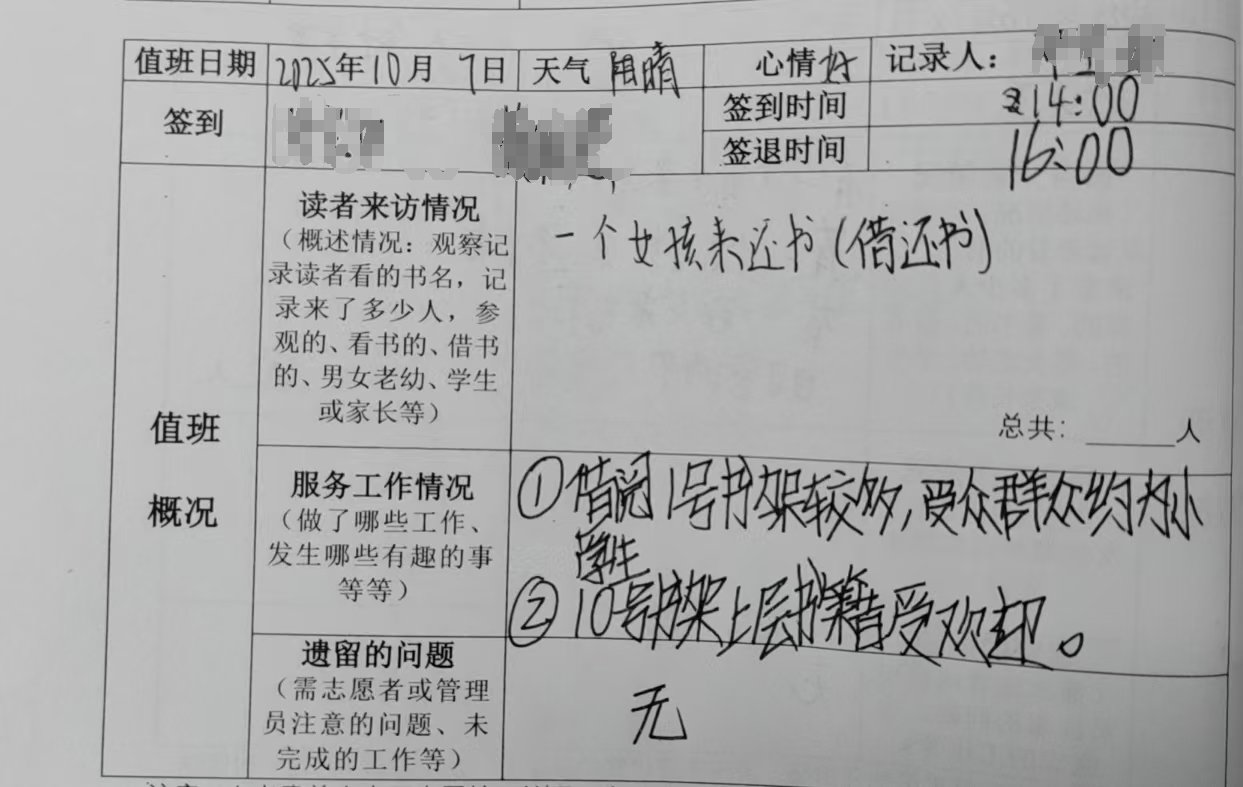 值班日期 2025年10月7日 天气 阳晴 心情 好 记录人：
签到 签到时间 14:00
签退时间 16:00
值班
概况
读者来访情况
（概述情况：观察记
录读者看的书名，记
录来了多少人，参
观的、看书的、借书
的、男女老幼、学生
或家长等）
一个女孩来还书(借还书)
总共：______人
服务工作情况
（做了哪些工作、
发生哪些有趣的事
等等）
①借阅1号书架较多,受众群众约为小
学生
②10号书架上层书籍受欢迎。
遗留的问题
（需志愿者或管理
员注意的问题、未
完成的工作等）
无